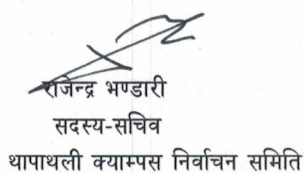 राजेन्द्र भण्डारी
सदस्य-सचिव
थापाथली क्याम्पस निर्वाचन समिति